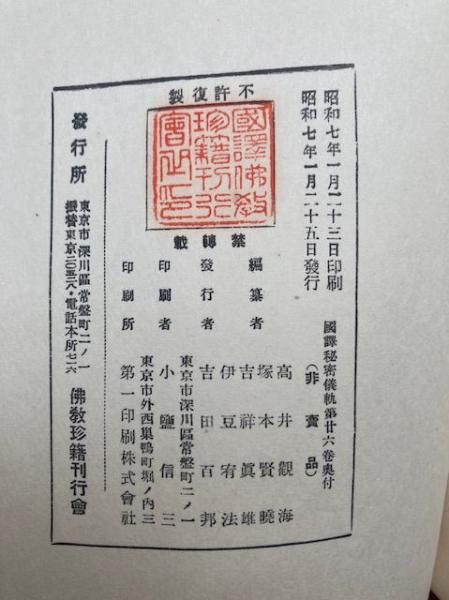 昭和七年一月二十三日印刷
昭和七年一月二十五日發行
國譯秘密儀軌第廿六卷奧付
(非賣品)
不許復製
國譯佛教
珍籍刊行
會之印
禁轉載
編纂者
高井觀海
塚本賢曉
吉祥眞雄
伊豆宥法
發行者
東京市深川區常盤町二ノ一
吉田百邦
印刷者
東京市外西巢鴨町堀ノ内三
小鹽信三
印刷所
第一印刷株式會社
發行所
東京市深川區常盤町二ノ一
振替東京二〇五三八・電話本所七二六
佛教珍籍刊行會